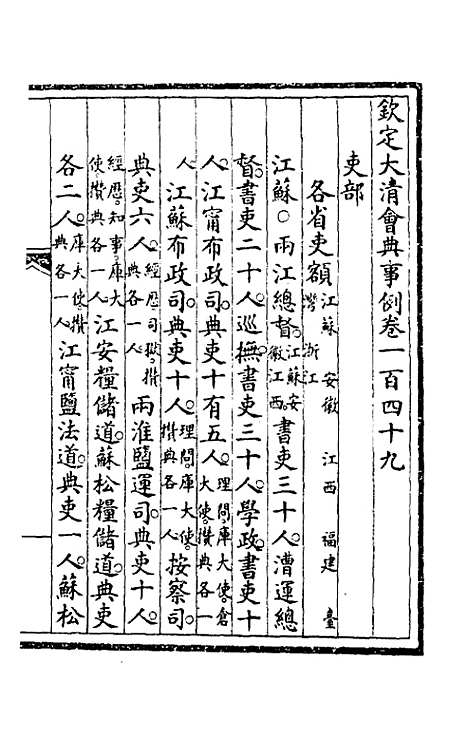 欽定大清會典事例卷一百四十九
吏部
各省吏額江蘇 安徽 江西 福建 臺灣 浙江
江蘇○兩江總督江蘇安徽江西書吏三十人漕運總
督書吏二十人巡撫書吏三十人學政書吏十
人江甯布政司典吏十有五人理問庫大使倉大使攢典各一
人江蘇布政司典吏十人理問庫大使攢典各一人按察司
典吏六人經歷司獄攢典各一人兩淮鹽運司典吏十人
經歷知事庫大使攢典各一人江安糧儲道蘇松糧儲道典吏
各二人庫大使攢典各一人江甯鹽法道典吏一人蘇松